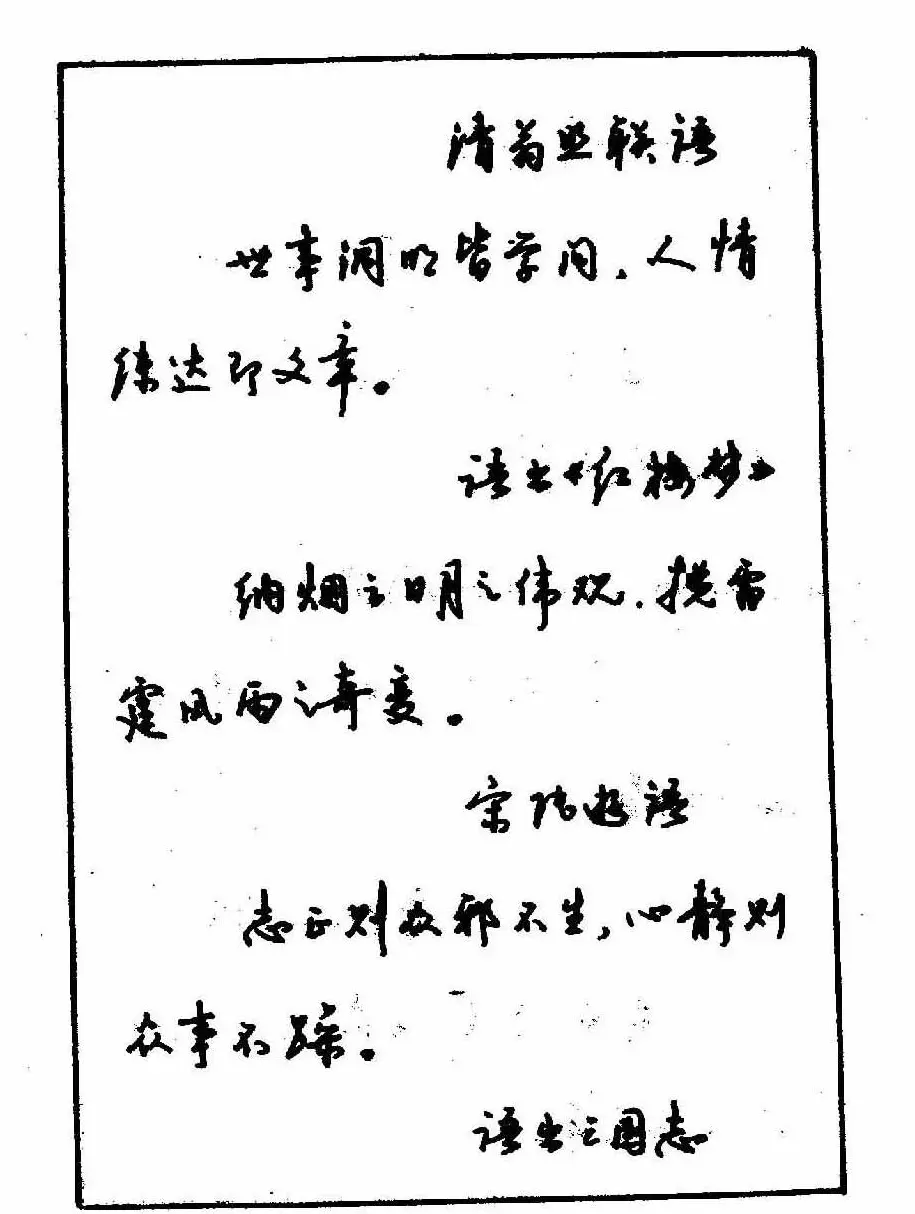 清联语
世事洞明皆学问，人情
练达即文章。
语出《红楼梦》
纳烟云日月之伟观，揽雷
霆风雨之奇变。
宋陆游语
志正则众邪不生，心静则
众事不躁。
语出三国志